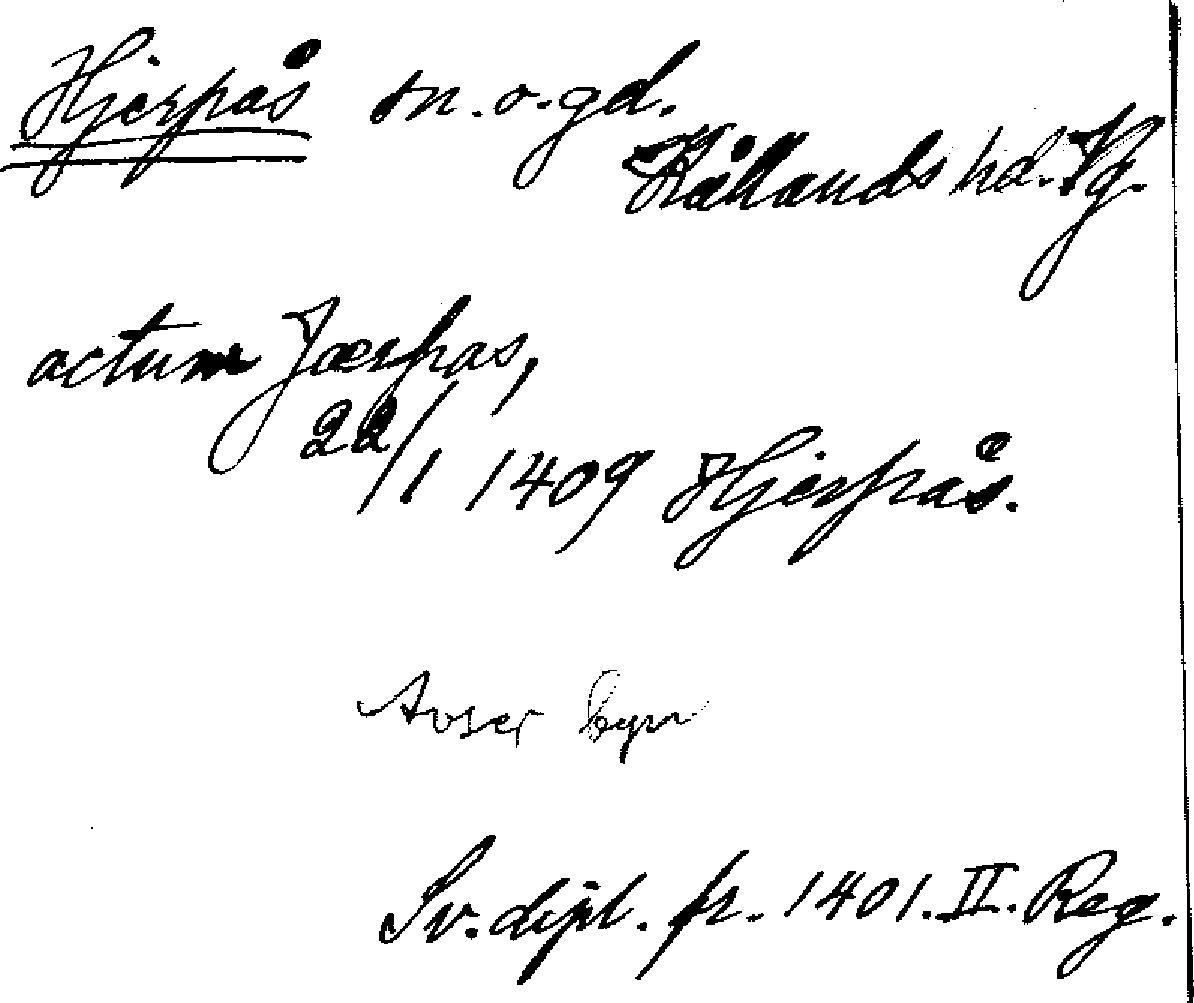 Hjerpås sn. o. gd.
Kållands hd. Vg.
actum Jærpas,
22/1 1409 Hjerpås.
Avser byn
Sv. dipl. fr. 1401. II. Reg.